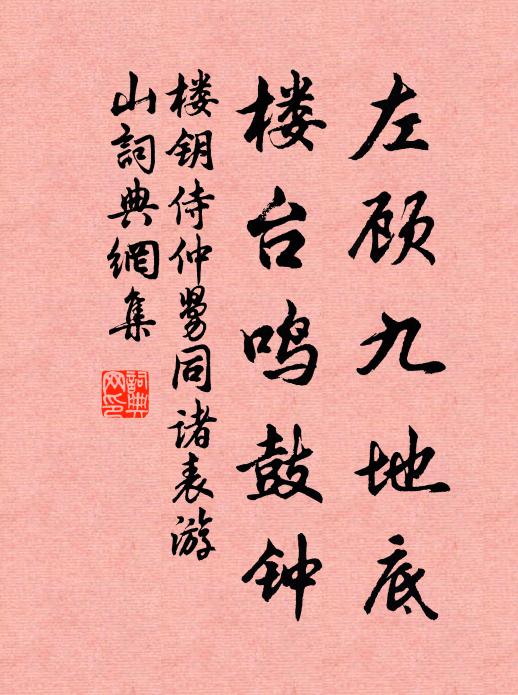 左顾九地底
楼台鸣鼓钟
楼钥侍仲舅同诸表游
山詞典網集
詞典网印